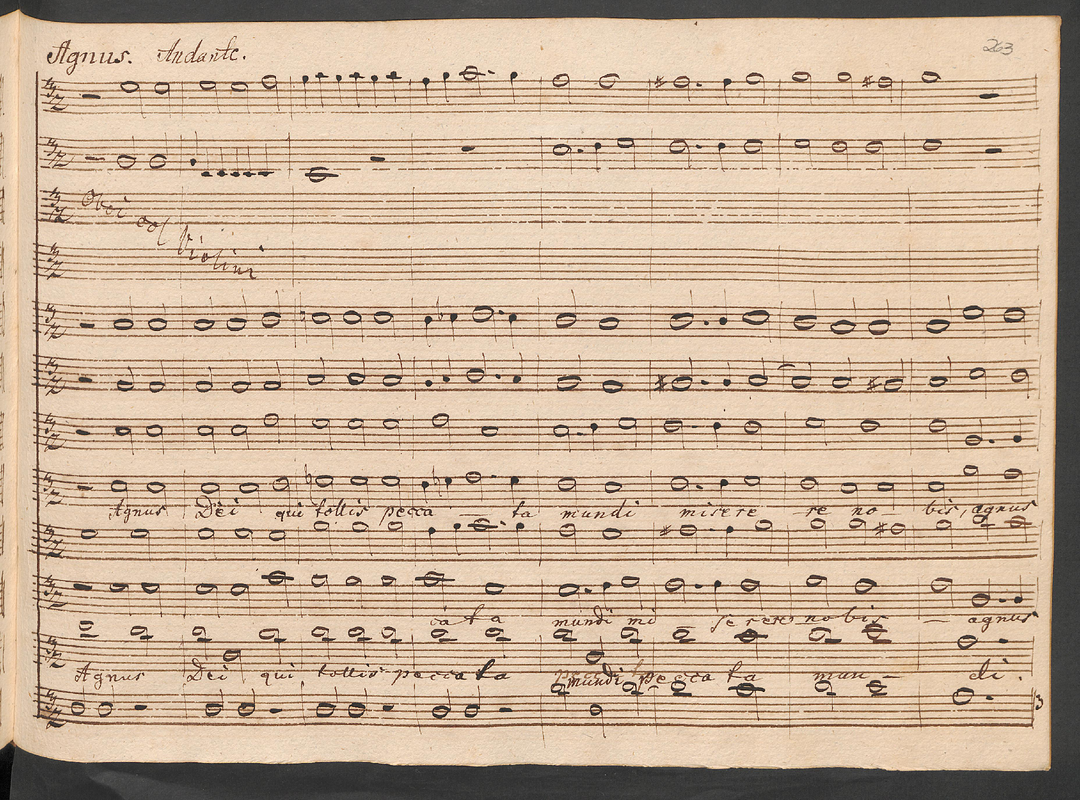 Agnus. Andante.
263
Oboi col Violini
Agnus Dei qui tollis pecca - ta mundi misere re no - bis, agnus
cata mundi mi - serere nobis - agnus
Agnus Dei qui tollis peccata mundi, pecca ta mun - di.
3